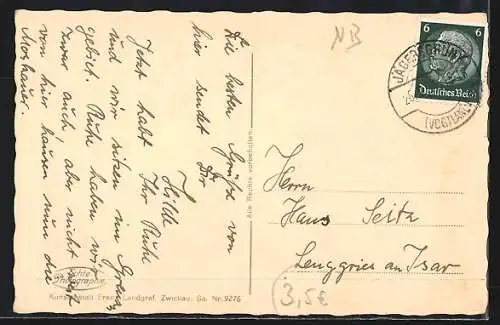 Die besten Grüße von
hier sendet Dir
Hilde
Jetzt habt Ihr Ruhe
und wir sitzen im
gebirt. Ruhe haben wir
zwar auch, aber nicht
von hier hausen nun die
Moshauer.
NB
6 6
Deutsches Reich
JÄGERSGRÜN
(VOGTLAND)
Herrn
Hans Seitz
Lenggries an Isar
3,5€
Alle Rechte vorbehalten.
Echte
Photographie
Kunstanstalt Erich Landgraf, Zwickau, Sa. Nr. 9276